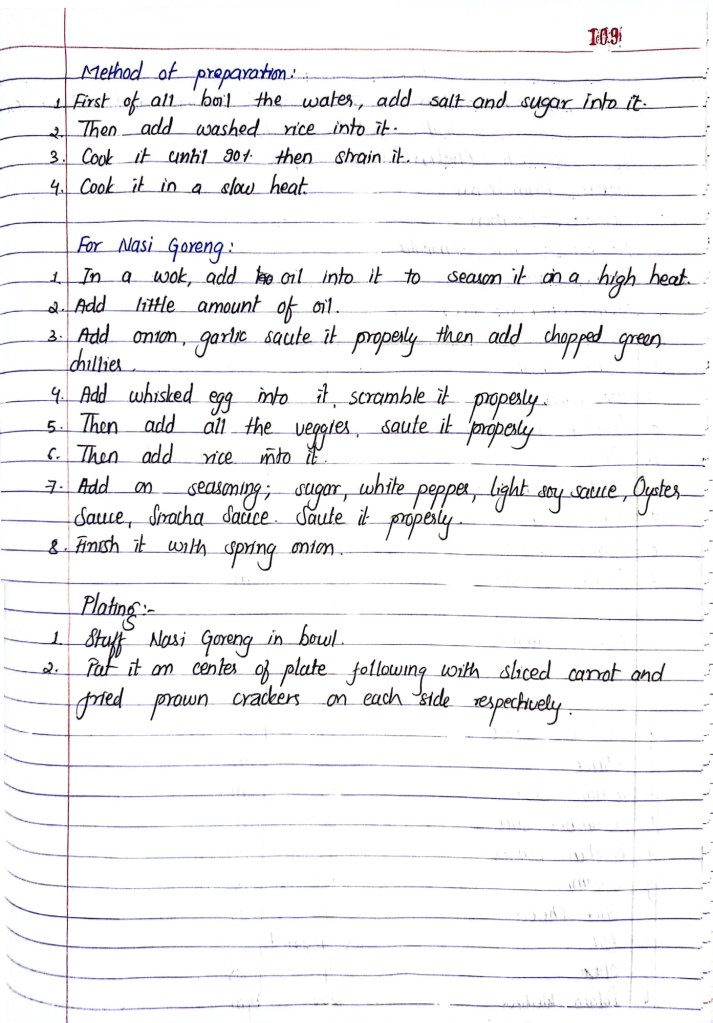 109
Method of preparation:
1. First of all boil the water, add salt and sugar into it.
2. Then add washed rice into it.
3. Cook it until 90% then strain it.
4. Cook it in a slow heat
For Nasi Goreng:
1. In a wok, add oil into it to season it on a high heat.
2. Add little amount of oil.
3. Add onion, garlic saute it properly then add chopped green
chillies.
4. Add whisked egg into it, scramble it properly.
5. Then add all the veggies, saute it properly
6. Then add rice into it.
7. Add on seasoning; sugar, white pepper, light soy sauce, Oyster
Sauce, Siracha Sauce. Saute it properly.
8. Finish it with spring onion.
Plating:-
1. Stuff Nasi Goreng in bowl.
2. Put it on center of plate following with sliced carrot and
fried prawn crackers on each side respectively.